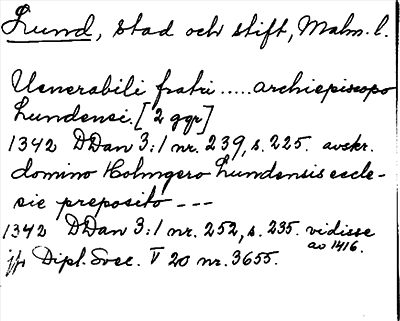 Lund, stad och stift, Malm. l.
Uenerabili fratri ..... archiepiscopo
Lundensi. [2 ggr]
1342 DDan 3:1 nr. 239, s. 225. avskr.
domino Holmgero Lundensis eccle-
sie preposito ---
1342 DDan 3:1 nr. 252, s. 235. vidisse
ao 1416.
jfr Dipl. Svec. V 20 nr. 3655.